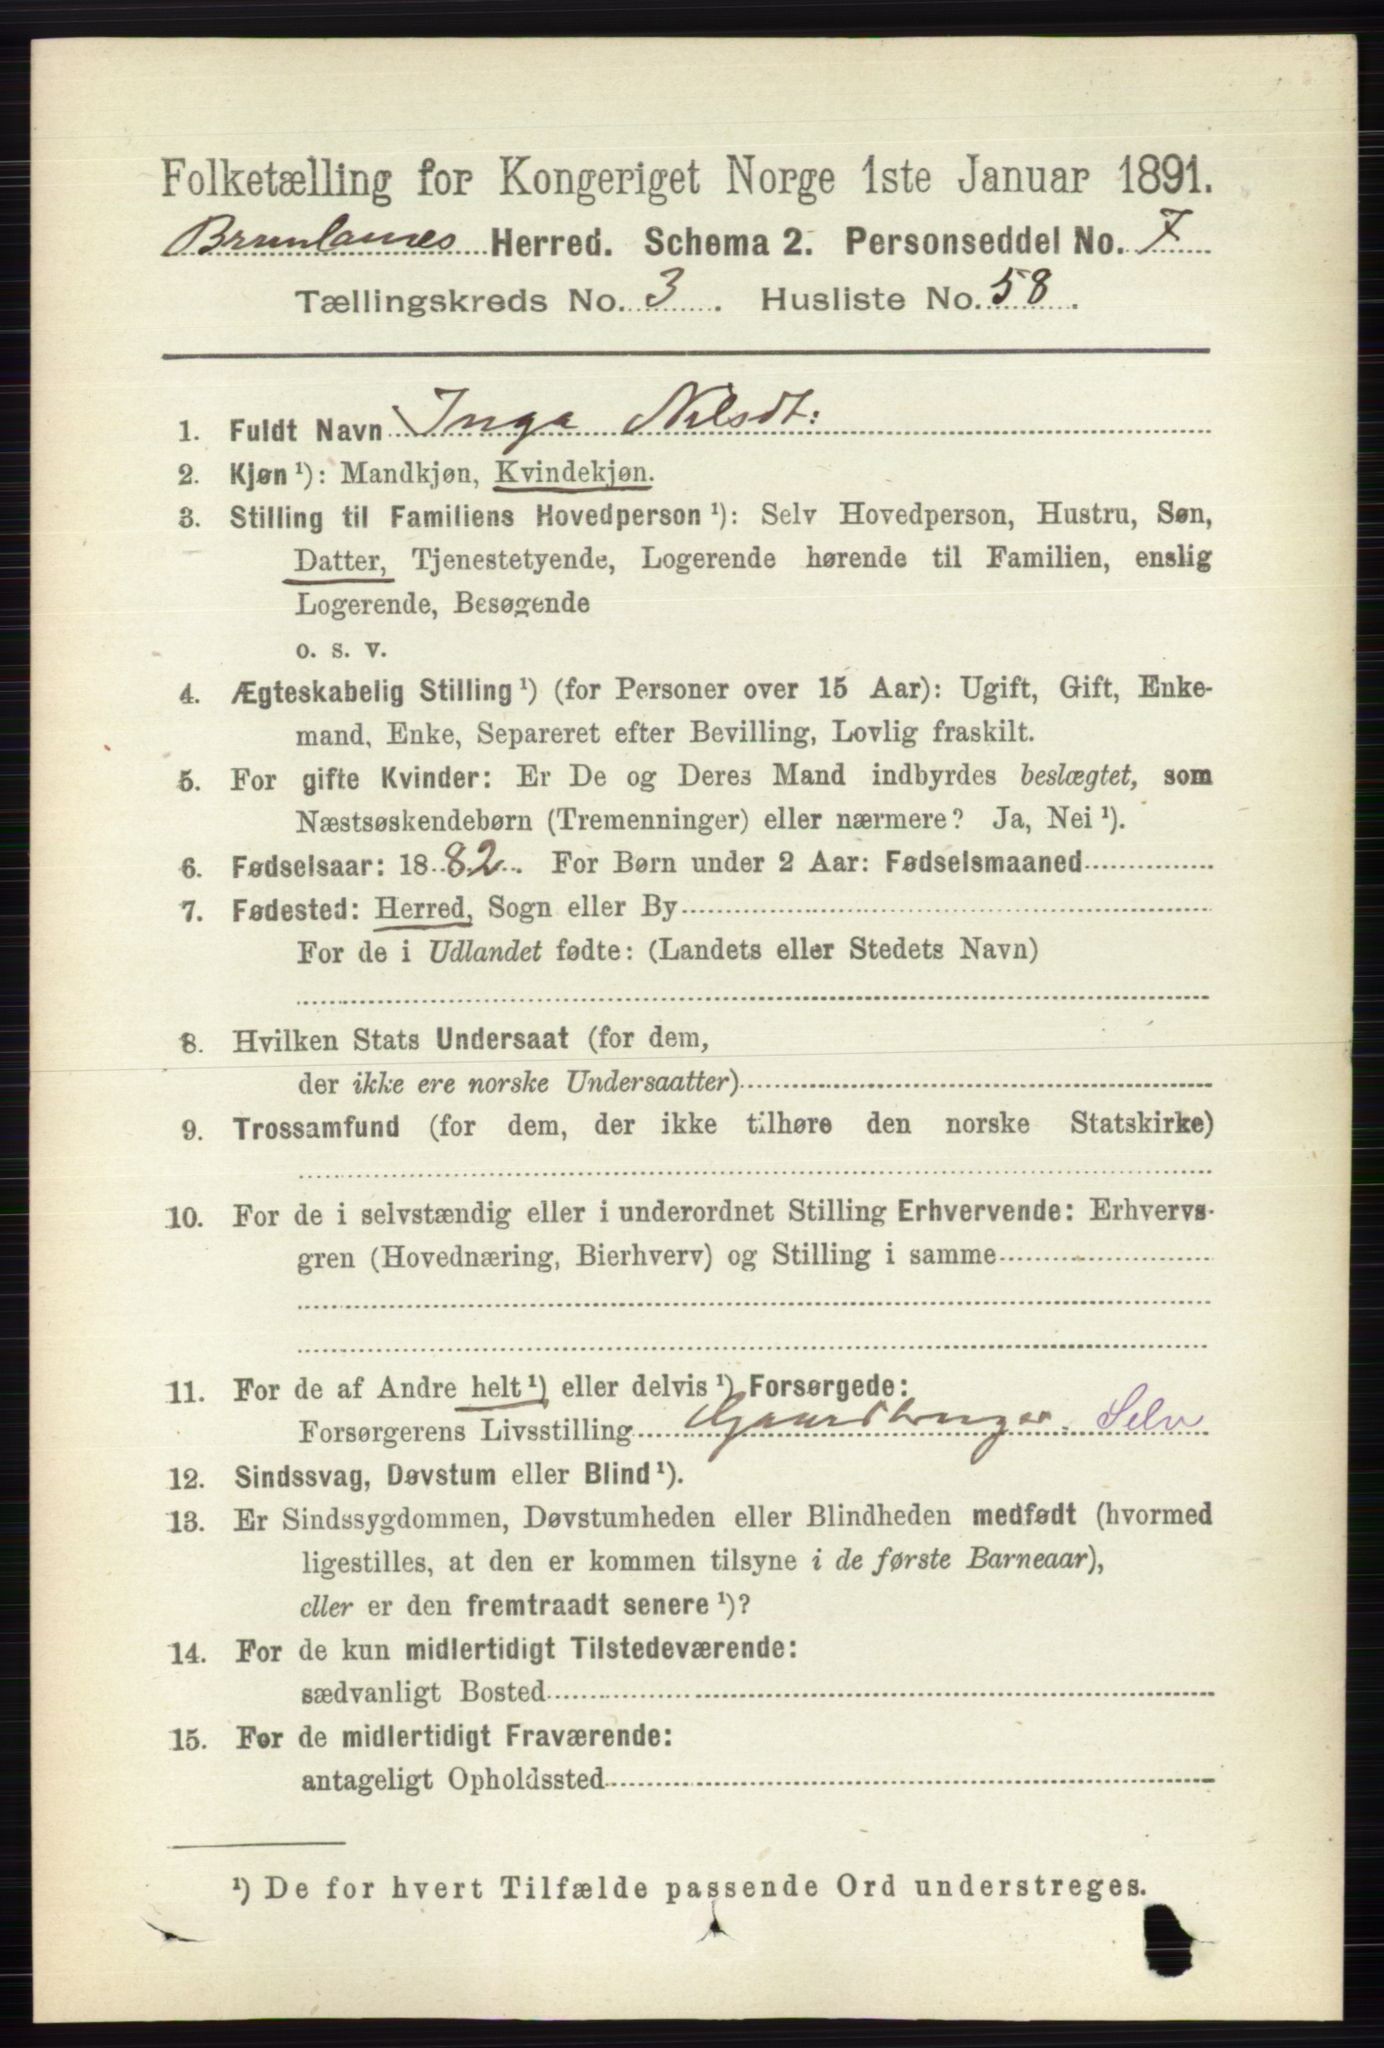 Folketælling for Kongeriget Norge 1ste Januar 1891.
Brunlanæs Herred. Schema 2. Personseddel No. 7
Tællingskreds No. 3. Husliste No. 58.
1. Fuldt Navn Inga Nilsdt:
2. Kjøn¹): Mandkjøn, Kvindekjøn.
3. Stilling til Familiens Hovedperson¹): Selv Hovedperson, Hustru, Søn,
Datter, Tjenestetyende, Logerende hørende til Familien, enslig
Logerende, Besøgende
o. s. v.
4. Ægteskabelig Stilling¹) (for Personer over 15 Aar): Ugift, Gift, Enke-
mand, Enke, Separeret efter Bevilling, Lovlig fraskilt.
5. For gifte Kvinder: Er De og Deres Mand indbyrdes beslægtet, som
Næstsøskendebørn (Tremenninger) eller nærmere? Ja, Nei¹).
6. Fødselsaar: 1882. For Børn under 2 Aar: Fødselsmaaned
7. Fødested: Herred, Sogn eller By
For de i Udlandet fødte: (Landets eller Stedets Navn)
8. Hvilken Stats Undersaat (for dem,
der ikke ere norske Undersaatter)
9. Trossamfund (for dem, der ikke tilhøre den norske Statskirke)
10. For de i selvstændig eller i underordnet Stilling Erhvervende: Erhvervs-
gren (Hovednæring, Bierhverv) og Stilling i samme
11. For de af Andre helt¹) eller delvis¹) Forsørgede:
Forsørgerens Livsstilling Gaardbruger. Selv
12. Sindssvag, Døvstum eller Blind¹).
13. Er Sindssygdommen, Døvstumheden eller Blindheden medfødt (hvormed
ligestilles, at den er kommen tilsyne i de første Barneaar),
eller er den fremtraadt senere¹)?
14. For de kun midlertidigt Tilstedeværende:
sædvanligt Bosted
15. For de midlertidigt Fraværende:
antageligt Opholdssted
¹) De for hvert Tilfælde passende Ord understreges.